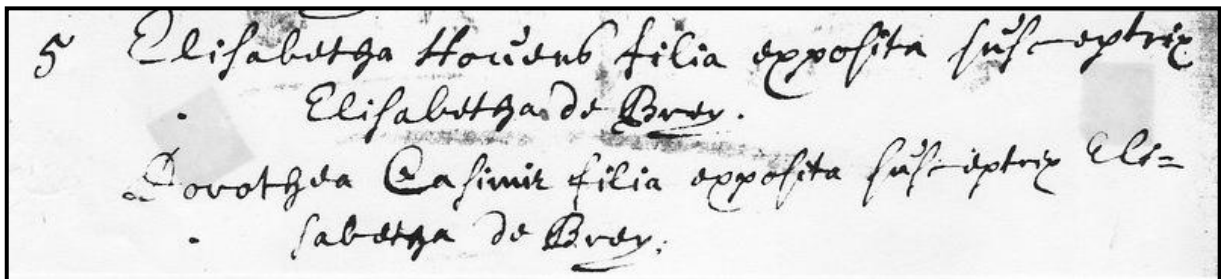 5 Elisabetha Houens filia exposita susceptrix
Elisabetha de Brey.
Dorothea Casimir filia exposita susceptrix Eli=
sabetha de Brey.